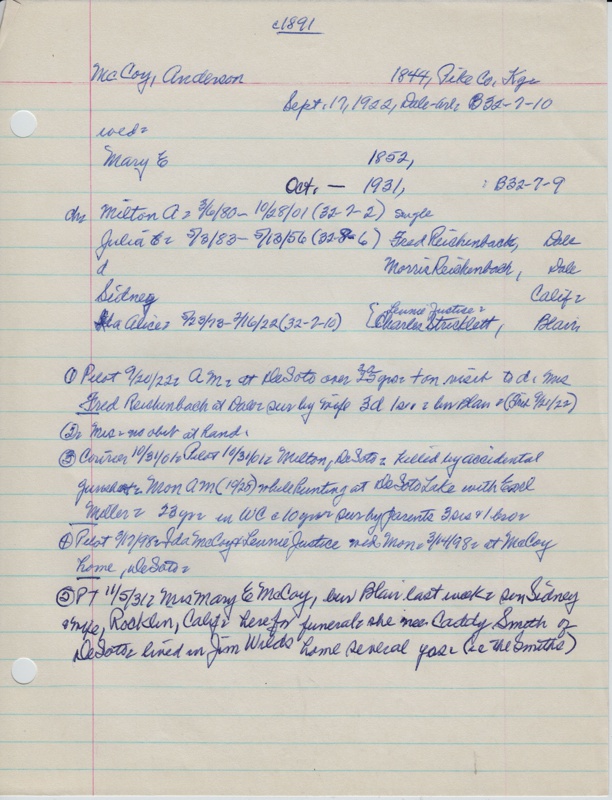 c1891
McCoy, Anderson 1844, Pike Co, Ky=
Sept. 17, 1922, Dale= B32-7-10
wed=
Mary E 1852,
Oct. — 1931, : B32-7-9
ch= Milton A= 3/6/80- 10/28/01 (32-7-2) single
Julia 5/3/83- 5/13/56 (32-8-6) Fred Reichenback, Dale
d Morris Reichenbach, Dale
Sidney Calif=
Ida Alice= 5/23/73- 3/16/22 (32-7-10) { Lennie Justice= Charles Stricklett, Blair
① Pilot 9/20/22= A M= at DeSoto over 35 yrs= + on visit to d= Mrs
Fred Reichenbach at Dale= sur by wife 3d 1s= bur Blair= 9/21/22)
② Mrs= no obit at hand.
③ Courier 10/31/01= Pilot 10/31/01= Milton, DeSoto= killed by accidental
gunshot= Mon AM (10/28) while hunting at DeSoto Lake with
Miller= 23 yr= in WC 10 yrs= sur by parents 3 sis + 1 bro=
④ Pilot 3/17/98= Ida McCoy + Lennie Justice wed Mon= 3/14/98= at McCoy
home, DeSoto=
⑤ PT 11/5/31= Mrs Mary E McCoy, bur Blair last week= son Sidney
+ wife, Rocklin, Calif= here for funeral= she nee Caddy Smith of
DeSoto= lived in Jim Wilds home several yrs= (ie the Smiths)